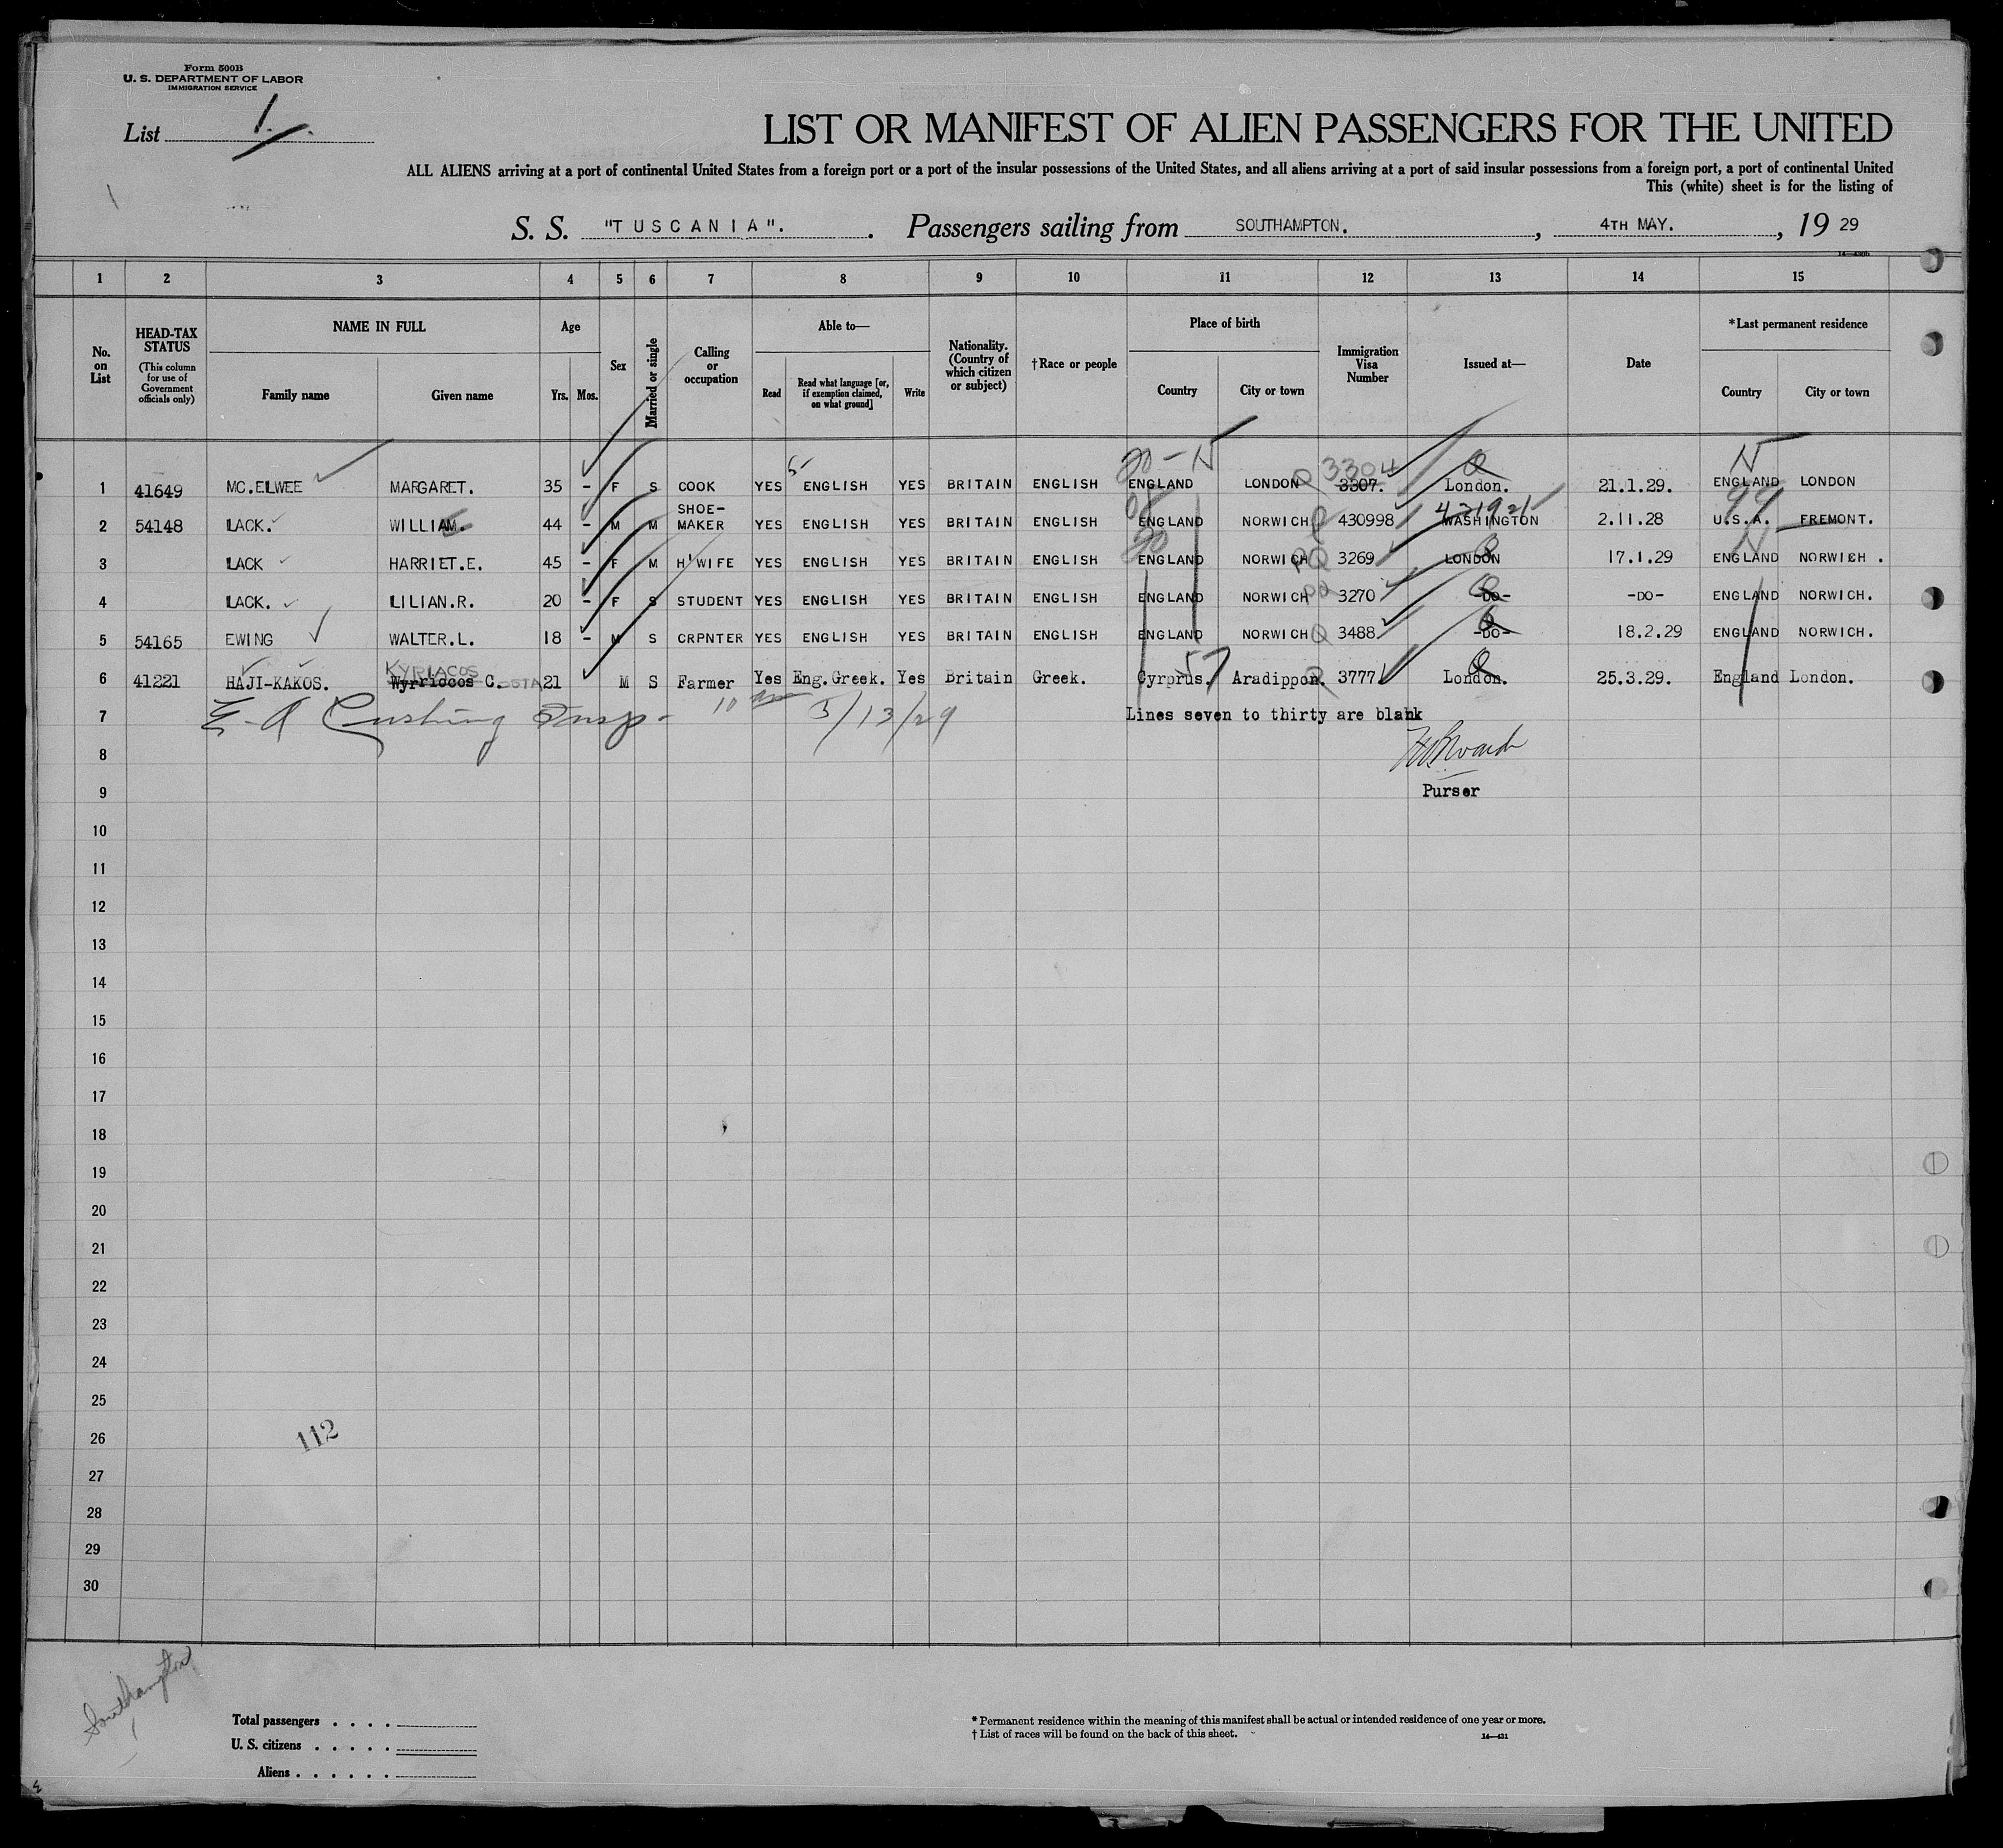 Form 500B
U. S. DEPARTMENT OF LABOR
IMMIGRATION SERVICE
List 1.
LIST OR MANIFEST OF ALIEN PASSENGERS FOR THE UNITED
ALL ALIENS arriving at a port of continental United States from a foreign port or a port of the insular possessions of the United States, and all aliens arriving at a port of said insular possessions from a foreign port, a port of continental United
This (white) sheet is for the listing of
S. S. "TUSCANIA". Passengers sailing from SOUTHAMPTON. , 4TH MAY. , 19 29
1 2 3 4 5 6 7 8 9 10 11 12 13 14 15
No. on List
HEAD-TAX STATUS (This column for use of Government officials only)
NAME IN FULL
Family name Given name
Age
Yrs. Mos.
Sex
Married or single
Calling or occupation
Able to—
Read Read what language [or, if exemption claimed, on what ground] Write
Nationality. (Country of which citizen or subject)
†Race or people
Place of birth
Country City or town
Immigration Visa Number
Issued at—
Date
*Last permanent residence
Country City or town
20 - N 3304 N
1 41649 MC.ELWEE MARGARET. 35 - F S COOK YES ENGLISH YES BRITAIN ENGLISH ENGLAND LONDON 3307. London. 21.1.29. ENGLAND LONDON
99
2 54148 LACK. WILLIAM. 44 - M M SHOE-MAKER YES ENGLISH YES BRITAIN ENGLISH ENGLAND NORWICH 430998 WASHINGTON 2.11.28 U.S.A. FREMONT.
3 LACK HARRIET.E. 45 - F M H'WIFE YES ENGLISH YES BRITAIN ENGLISH ENGLAND NORWICH 3269 LONDON 17.1.29 ENGLAND NORWICH .
4 LACK. LILIAN.R. 20 - F S STUDENT YES ENGLISH YES BRITAIN ENGLISH ENGLAND NORWICH 3270 -DO- -DO- ENGLAND NORWICH.
5 54165 EWING WALTER.L. 18 - M S CRPNTER YES ENGLISH YES BRITAIN ENGLISH ENGLAND NORWICH 3488 -DO- 18.2.29 ENGLAND NORWICH.
KYRIACOS 57
6 41221 HAJI-KAKOS. Wyrriocos C. 21 M S Farmer Yes Eng.Greek. Yes Britain Greek. Cyrprus. Aradippon. 3777 London. 25.3.29. England London.
7 E A Cushing Insp- 10 5/13/29 Lines seven to thirty are blank
8
9 Purser
10
11
12
13
14
15
16
17
18
19
20
21
22
23
24
25
26 112
27
28
29
30
Southampton
Total passengers
U. S. citizens
Aliens
* Permanent residence within the meaning of this manifest shall be actual or intended residence of one year or more.
† List of races will be found on the back of this sheet.
14—431